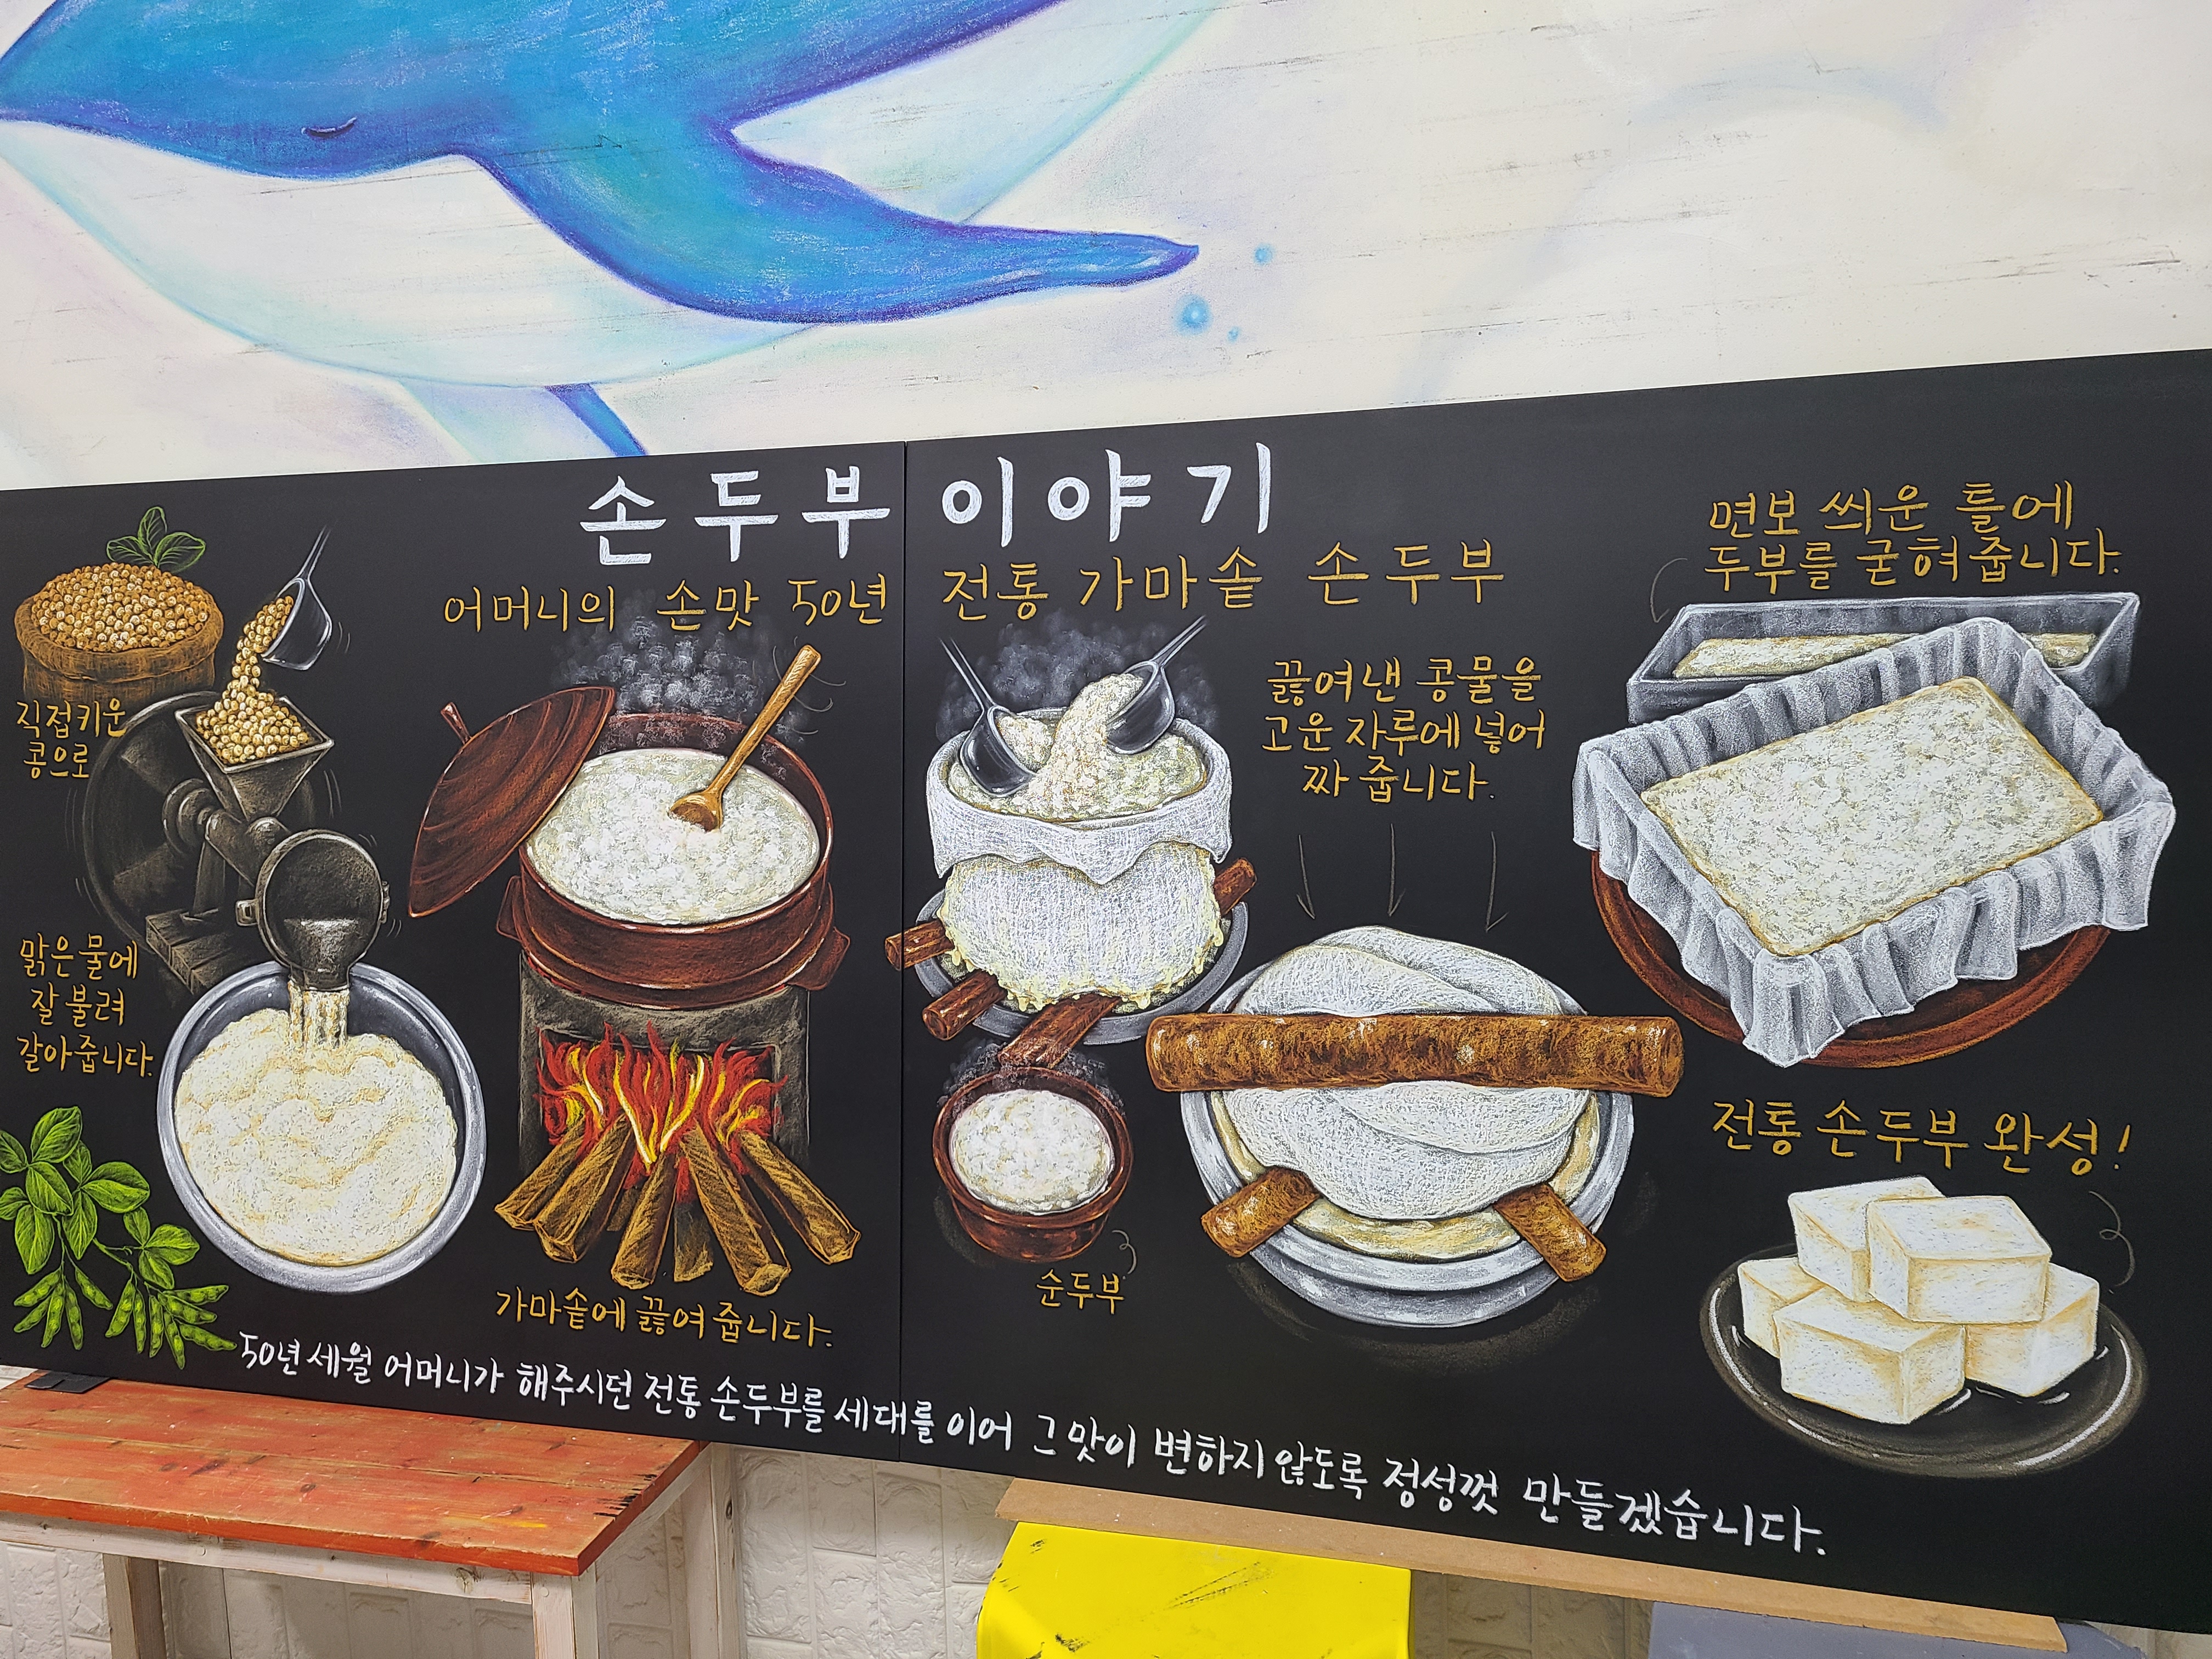 손두부 이야기
어머니의 손맛 50년 전통 가마솥 손두부
직접키운
콩으로
맑은물에
잘 불려
갈아줍니다.
가마솥에 끓여 줍니다.
끓여낸 콩물을
고운 자루에 넣어
짜 줍니다.
순두부
면보 씌운 틀에
두부를 굳혀줍니다.
전통 손두부 완성!
50년 세월 어머니가 해주시던 전통 손두부를 세대를 이어 그 맛이 변하지 않도록 정성껏 만들겠습니다.